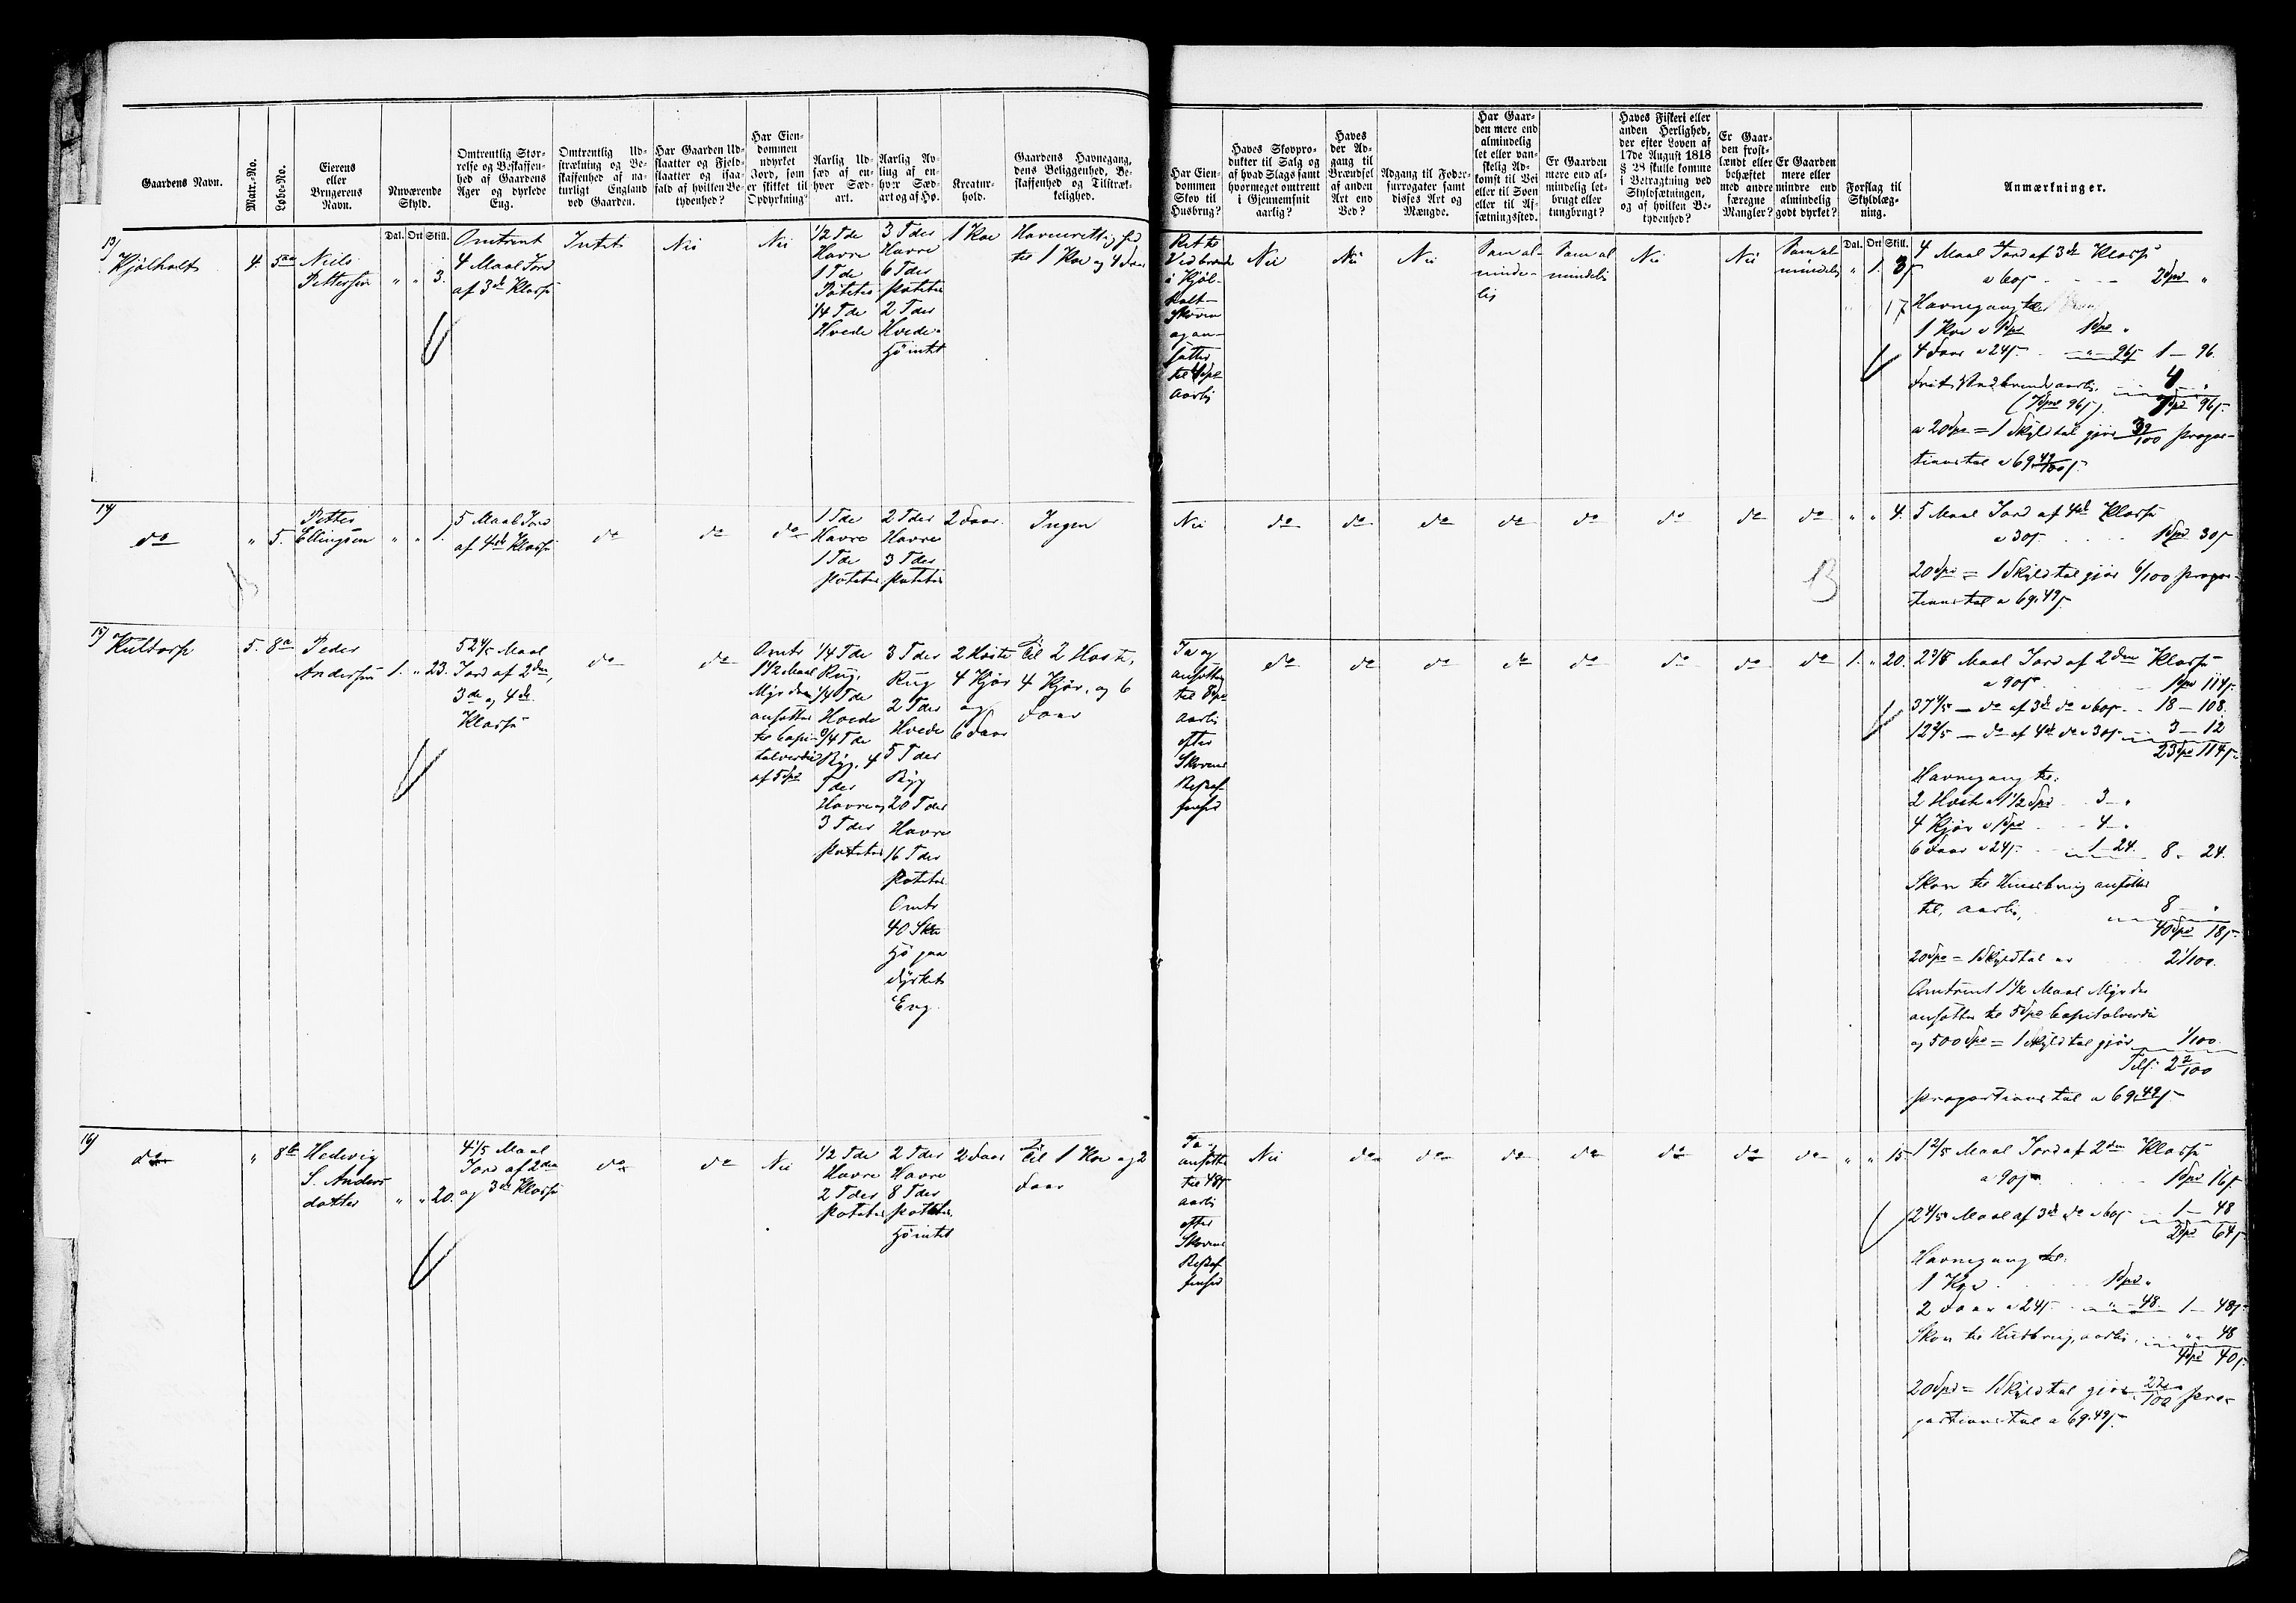 Gaardens Navn.
Matr.-No.
Løbe-No.
Eierens
eller
Brugerens
Navn.
Nuværende
Skyld.
Omtrentlig Stør-
relse og Beskaffen-
hed af Gaardens
Ager og dyrkede
Eng.
Omtrentlig Ud-
strækning og Be-
skaffenhed af na-
turligt England
ved Gaarden.
Har Gaarden Ud-
slaatter og Fjeld-
slaatter og isaa-
fald af hvilken Be-
tydenhed?
Har Eien-
dommen
udyrket
Jord, som
er skikket til
Opdyrkning?
Aarlig Ud-
sæd af en-
hver Sæd-
art.
Aarlig Av-
ling af en-
hver Sæd-
art og af Hø.
Kreatur-
hold.
Gaardens Havnegang,
dens Beliggenhed, Be-
skaffenhed og Tilstræk-
kelighed.
Har Eien-
dommen
Skov til
Husbrug?
Haves Skovpro-
dukter til Salg og
af hvad Slags samt
hvormeget omtrent
i Gjennemsnit
aarlig?
Haves
der Ad-
gang til
Brændsel
af anden
Art end
Ved?
Adgang til Foder-
surrogater samt
disses Art og
Mængde.
Har Gaar-
den mere end
almindelig
let eller van-
skelig Ad-
komst til Vei
eller til Søen
eller til Af-
sætningssted.
Er Gaarden
mere end al-
mindelig let-
eller
tungbrugt?
Haves Fiskeri eller
anden Herlighed,
der efter Loven af
17de August 1818
§ 28 skulle komme
i Betragtning ved
Skyldsætningen,
og af hvilken Be-
tydenhed?
Er Gaar-
den frost-
lændt eller
behæftet
med andre
særegne
Mangler?
Er Gaarden
mere eller
mindre end
almindelig
godt dyrket?
Forslag til
Skyldlæg-
ning.
Anmærkninger.
Dal. Ort Skill.
Dal. Ort Skill.
13/
Kjølholt
4.
5aa
Niels
Pettersen
" " 3.
Omtrent
4 Maal Jord
af 3de Klasse
Intet
Nei
Nei
1/2 Tde
Havre
1 Tde
Poteter
1/4 Tde
Hvede
3 Tdr
Havre
6 Tdr
Poteter
2 Tdr
Hvede.
Hø intet
1 Koe
Havneret
til 1 Koe og 4 Faar
Ret til
Vedbrænde
i Kjøl-
holt-
Skoven
og an-
sættes
til 4 Spd
aarlig
Nei
Nei
Nei
Som al-
minde-
lig
Som al
mindelig
Nei
Nei
Som al-
mindelig
" 1.
17
4 Maal Jord af 3de Klasse
a 60s 2 Spd "
Havnegang til
1 Koe a 1 Spd 1 Spd "
4 Faar a 24s - " - 96s 1 - 96.
Frit Vedbrænde aarlig 4 "
(7 Spd 96s) 7 Spd 96s
a 20 Spd = 1 Skyldtal gjør 39/100 Propor-
tionstal a 69.49/100s
14/
do
" 5.
Petter
Ellingsen
" " 1.
5 Maal Jord
af 4de Klasse
do
do
do
1 Tde
Havre
1 Tde
Poteter
2 Tdr
Havre
3 Tdr
Poteter
2 Faar.
Ingen
Nei
do
do
do
do
do
do
do
do
" " 4.
B
5 Maal Jord af 4de Klasse
a 30s 1 Spd 30s
20 Spd = 1 Skyldtal gjør 6/100 Propor-
tionstal a 69.49s
15/
Kultorp
5. 8a
Peder
Andersen
1. " 23.
52 4/5 Maal
Jord af 2den,
3de og 4de
Klasse
do
do
Omtr
1 1/2 Maal
Myr
ansættes
til Capi-
talværdi
af 5 Spd
1/4 Tde
Rug,
1/4 Tde
Hvede
Byg, 4
Tdr
Havre og
3 Tdr
Poteter
3 Tdr
Rug
2 Tdr
Hvede
5 Tdr
Byg
20 Tdr
Havre
16 Tdr
Poteter
Omtr
40
Hø paa
dyrket
Eng.
2 Heste
4 Kjør
og
6 Faar
Til 2 Heste,
4 Kjør, og 6
Faar
Ja og
ansættes
til 8 Spd
aarlig
efter
Skovens
Beskaf-
fenhed
do
do
do
do
do
do
do
do
1. " 20.
Maal Jord af 2den Klasse
a 90s 1 Spd 114s
37 4/5 - do af 3de do a 60s 18 - 108.
12 2/5 - do af 4de do a 30s 3 - 12
23 Spd 114s
Havnegang til:
2 Heste a 1 1/2 Spd 3 - "
4 Kjør a 1 Spd 4 - "
6 Faar a 24s 1 - 24. 8 - 24.
Skov til Huusbrug ansættes
til, aarlig, 8 "
40 Spd 18s
20 Spd = 1 Skyldtal er 2 1/100.
Omtrent 1 1/2 Maal Myr der
ansættes til 5 Spd Capitalværdi
og 500 Spd = 1 Skyldtal gjør 1/100.
Tils. 2 2/100
Proportionstal a 69.49s
16/
do
" 8b
Hedevig
S. Anders-
datter
" " 20.
4 1/5 Maal
Jord af 2den
og 3de Klasse
do
do
Nei
1/2 Tde
Havre
2 Tdr
Poteter
2 Tdr
Havre
8 Tdr
Poteter.
Hø intet
2 Faar
Til 1 Koe og 2
Faar
Ja
ansættes
til 48s
aarlig
efter
Skovens
Beskaf-
fenhed
Nei
do
do
do
do
do
do
do
" " 15
1 2/5 Maal Jord af 2den Klasse
a 90s 1 Spd 16s
2 4/5 Maal af 3de do a 60s 1 - 48
2 Spd 64s
Havnegang til:
1 Koe 1 Spd "
2 Faar a 24s " - 48. 1 - 48s
Skov til Husbrug, aarlig " " 48
4 Spd 40s
20 Spd = 1 Skyldtal gjør 22/100 Pro-
portionstal a 69.49s